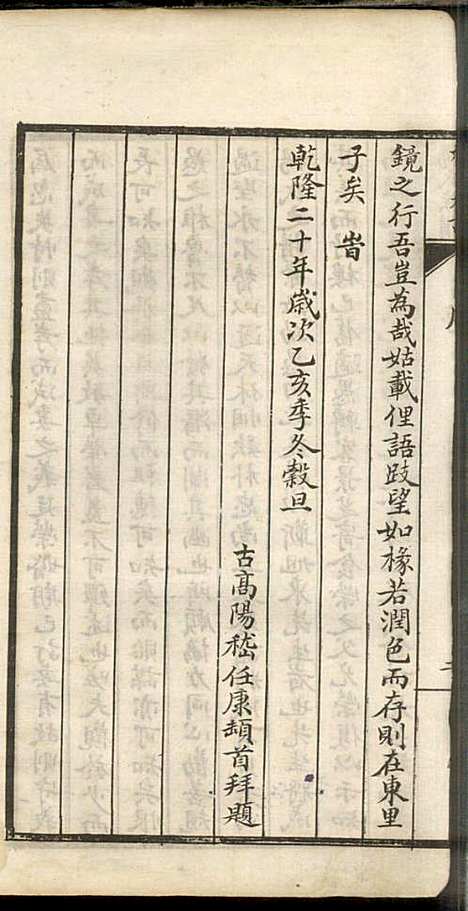 鏡之行吾豈為哉姑載俚語跂望如椽若潤色而存則在東里
子矣旹
乾隆二十年歲次乙亥季冬穀旦
古高陽嵇任康頓首拜題